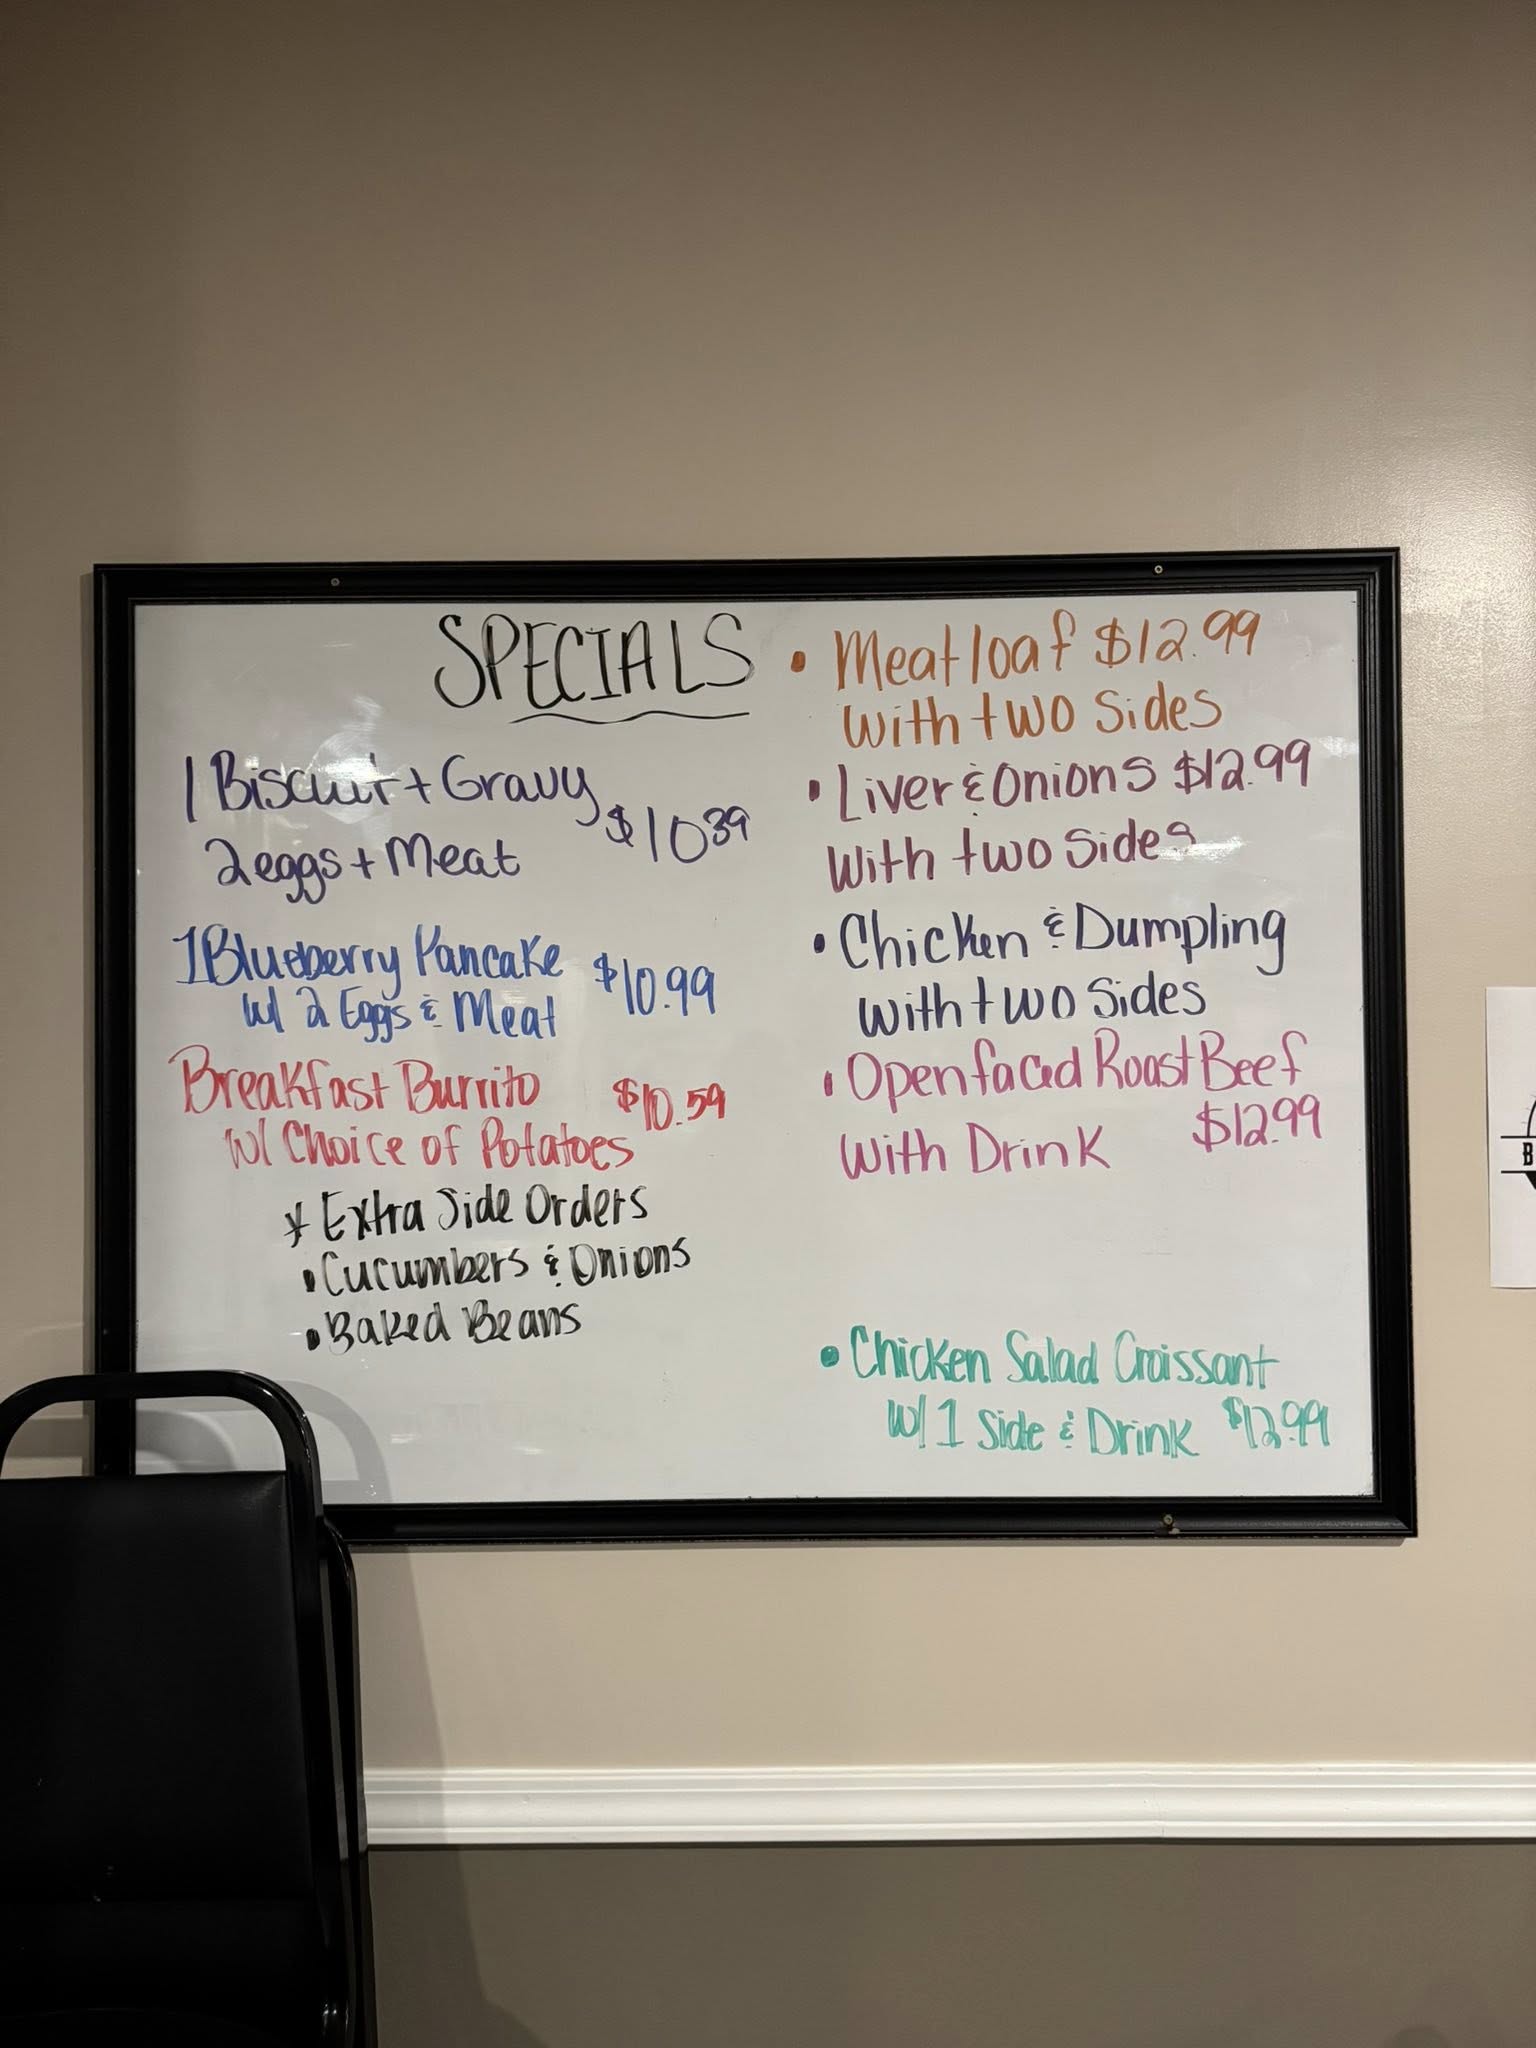 SPECIALS
1 Biscuit + Gravy
2 eggs + Meat
$10.39
1 Blueberry Pancake
w/ 2 Eggs & Meat
$10.99
Breakfast Burrito
w/ Choice of Potatoes
$10.59
* Extra Side Orders
• Cucumbers & Onions
• Baked Beans
• Meatloaf $12.99
with two sides
• Liver & Onions $12.99
with two sides
• Chicken & Dumpling
with two sides
• Openfaced Roast Beef
with Drink $12.99
• Chicken Salad Croissant
w/ 1 Side & Drink $12.99
B